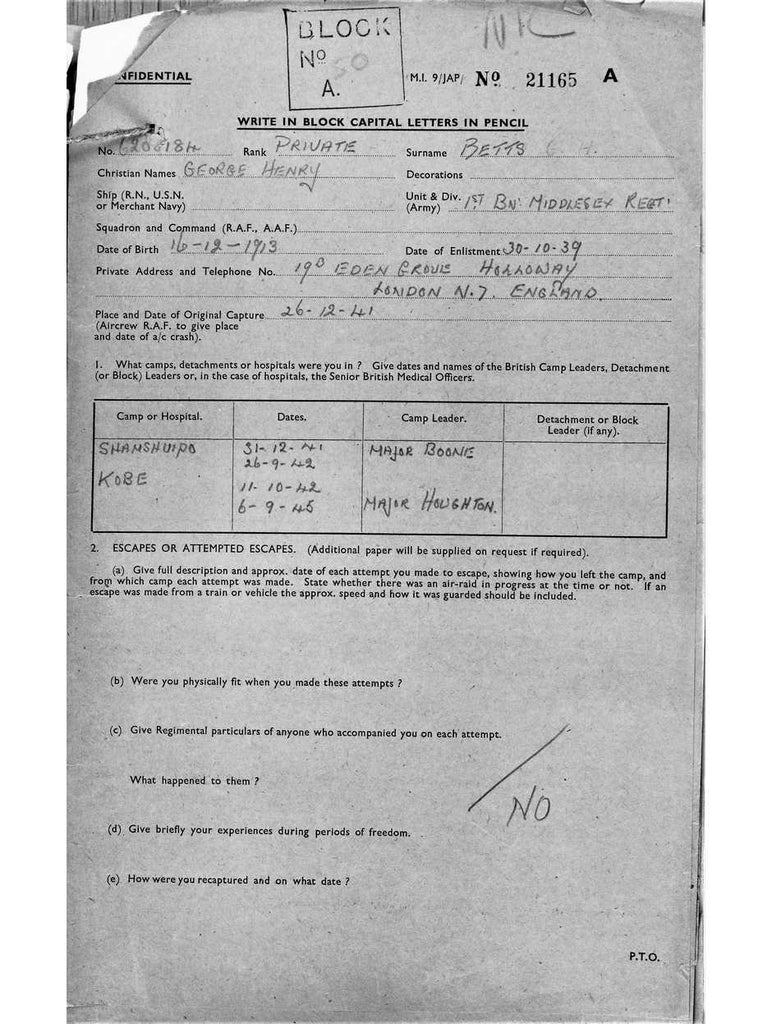 BLOCK
Nº 50
A.
NK
NFIDENTIAL
M.I. 9/JAP/ Nº 21165 A
WRITE IN BLOCK CAPITAL LETTERS IN PENCIL
No. 6206184 Rank PRIVATE Surname BETTS G H.
Christian Names GEORGE HENRY Decorations
Ship (R.N., U.S.N. or Merchant Navy) Unit & Div. (Army) 1ST BN: MIDDLESEX REGT:
Squadron and Command (R.A.F., A.A.F.)
Date of Birth 16-12-1913 Date of Enlistment 30-10-39
Private Address and Telephone No. 19B EDEN GROVE HOLLOWAY
LONDON N.7. ENGLAND.
Place and Date of Original Capture 26-12-41
(Aircrew R.A.F. to give place
and date of a/c crash).
1. What camps, detachments or hospitals were you in ? Give dates and names of the British Camp Leaders, Detachment
(or Block) Leaders or, in the case of hospitals, the Senior British Medical Officers.
Camp or Hospital. Dates. Camp Leader. Detachment or Block Leader (if any).
SHAMSHUIPO 31-12-41 MAJOR BOONE
26-9-42
KOBE 11-10-42
6-9-45 MAJOR HOUGHTON.
2. ESCAPES OR ATTEMPTED ESCAPES. (Additional paper will be supplied on request if required).
(a) Give full description and approx. date of each attempt you made to escape, showing how you left the camp, and
from which camp each attempt was made. State whether there was an air-raid in progress at the time or not. If an
escape was made from a train or vehicle the approx. speed and how it was guarded should be included.
(b) Were you physically fit when you made these attempts ?
(c) Give Regimental particulars of anyone who accompanied you on each attempt.
What happened to them ?
NO
(d) Give briefly your experiences during periods of freedom.
(e) How were you recaptured and on what date ?
P.T.O.